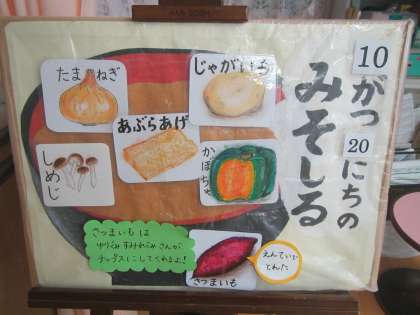 10がつ
20にちの
みそしる
たまねぎ
じゃがいも
あぶらあげ
しめじ
かぼちゃ
さつまいもは
ゆりぐみすみれぐみさんが
チップスにしてくれるよ!
さつまいも
えんていで
とれた